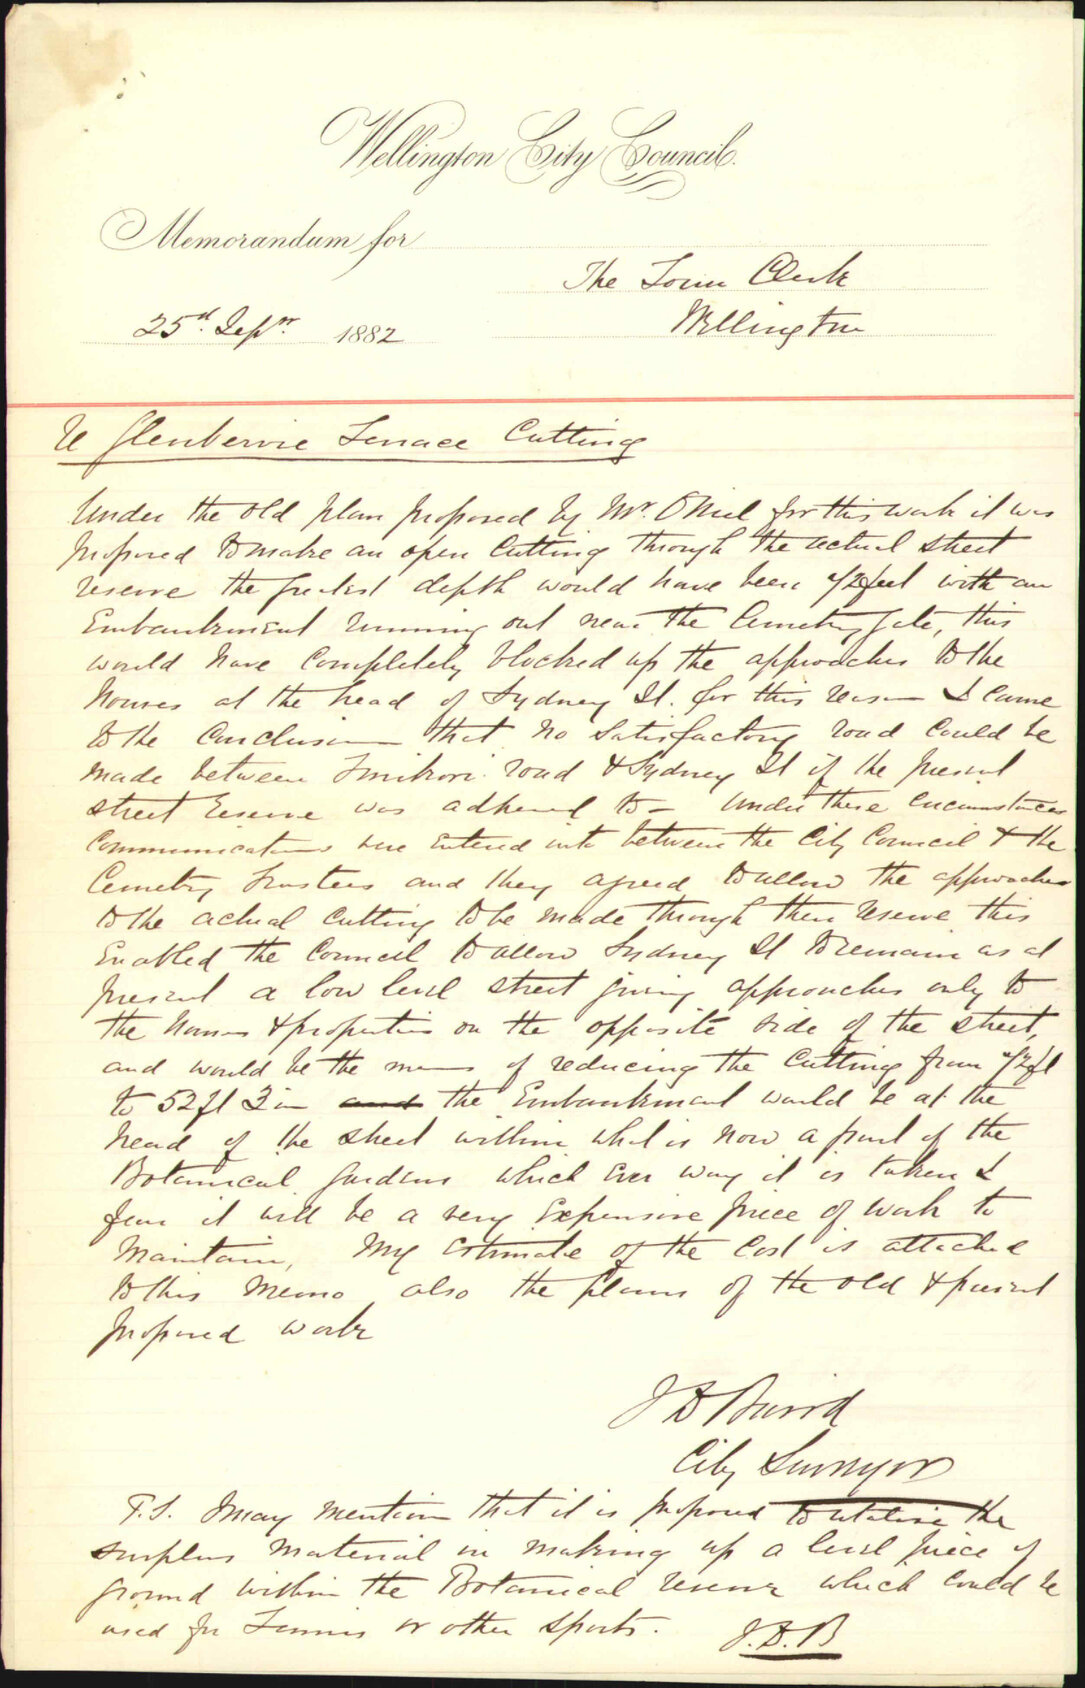 Wellington City Council.
Memorandum for
The Town Clerk
25th Sepr 1882
Wellington
re Glenbervie Terrace Cutting
Under the old plan proposed by Mr. O'Niel for this work it was
proposed to make an open Cutting through the actual street
reserve the greatest depth would have been 72 feet with an
Embankment running out near the Cemetry Gate, this
would have completely blocked up the approaches to the
houses at the head of Sydney St. for this reason I came
to the Conclusion that no satisfactory road could be
made between Tinikori road & Sydney St if the present
street reserve was adhered to – Under these circumstances
Communications were entered into between the City Council & the
Cemetry Trustees and they agreed to allow the approaches
to the actual Cutting to be made through their reserve this
Enabled the Council to allow Sydney St to remain as at
present a low level street giving approaches only to
the houses & properties on the opposite side of the street,
and would be the means of reducing the Cutting from 72 ft
to 52 ft 3 in and the Embankment would be at the
head of the street within what is now a part of the
Botanical Gardens which ever way it is taken I
fear it will be a very Expensive piece of work to
Maintain, My estimate of the Cost is attached
to this Memo also the plans of the old & present
proposed work
J D Baird
City Surveyor
P.S. I may mention that it is proposed to utalise the
surplus material in making up a level piece of
ground within the Botanical reserve which could be
used for Tennis or other sports.
J.D.B